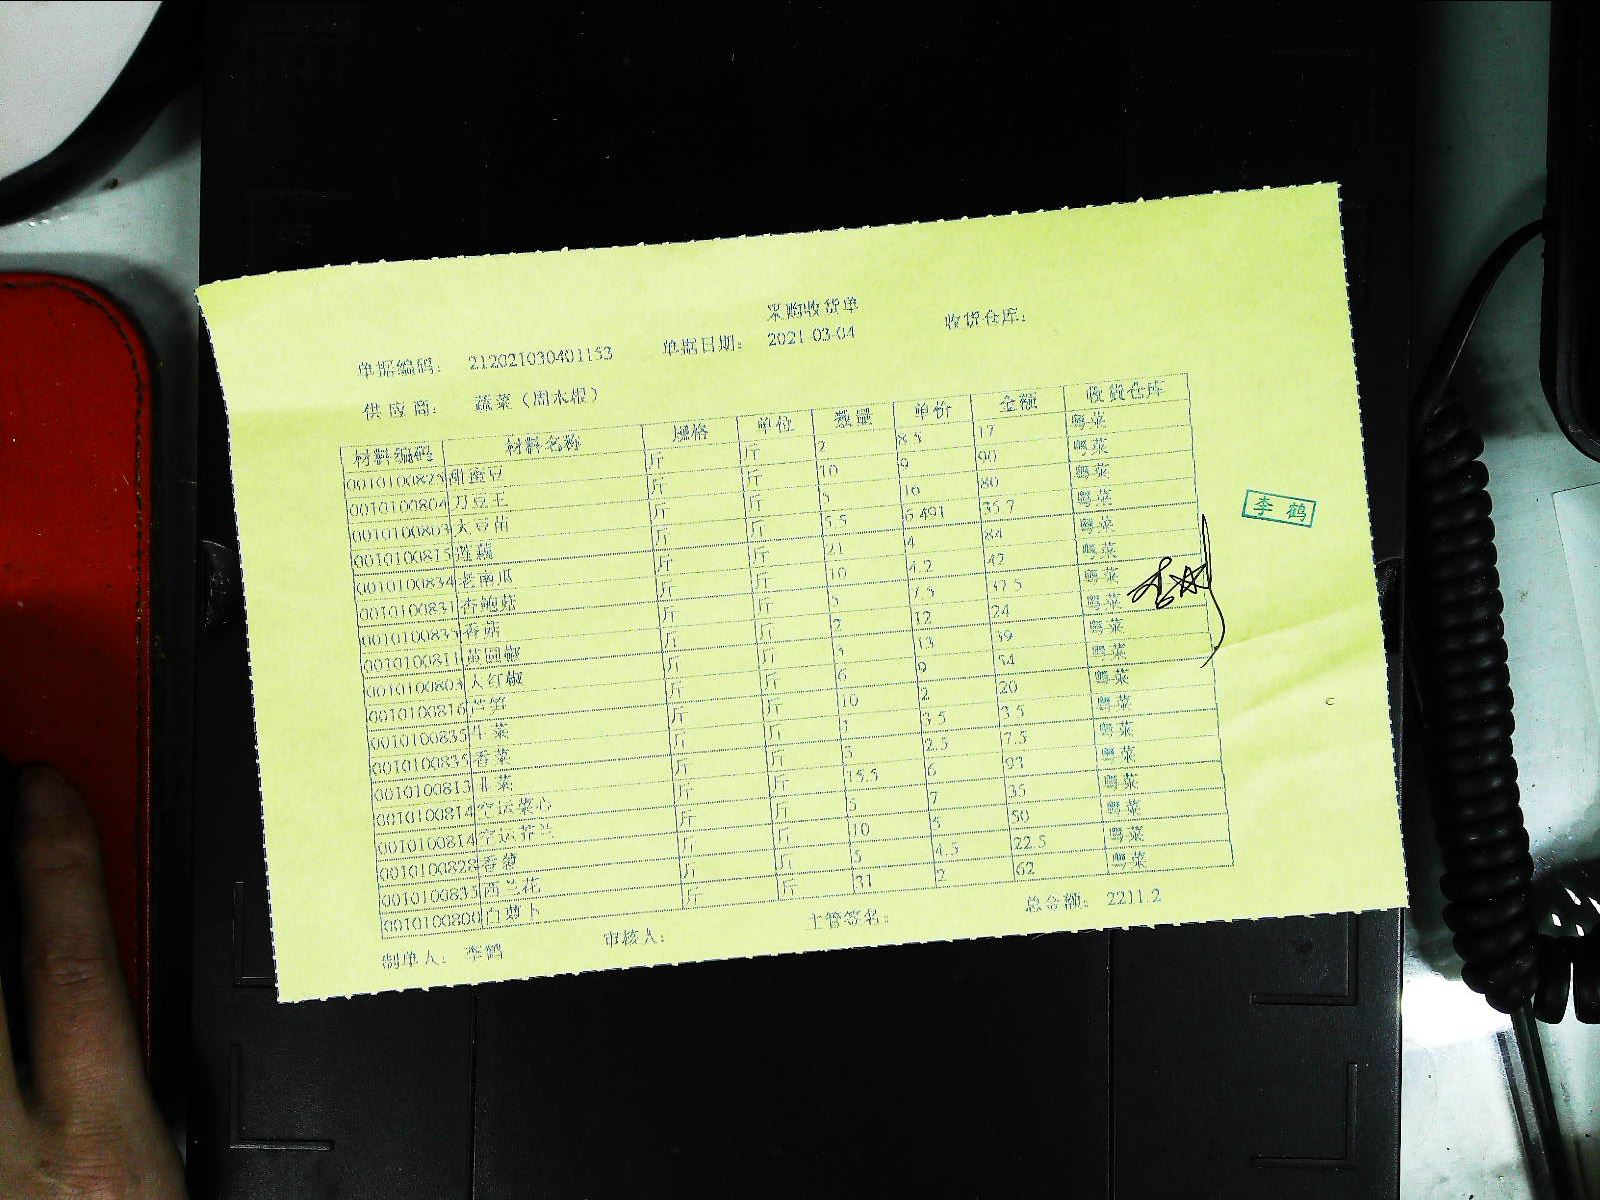 采购收货单
单据编码： 212021030401153 单据日期： 2021-03-04 收货仓库：
供应商： 蔬菜（周本银）
材料编码 材料名称 规格 单位 数量 单价 金额 收货仓库
0010100825 甜蜜豆 斤 斤 2 8.5 17 粤菜
0010100804 刀豆王 斤 斤 10 9 90 粤菜
0010100803 大豆苗 斤 斤 5 16 80 粤菜
0010100815 莲藕 斤 斤 5.5 6.491 35.7 粤菜
0010100834 老南瓜 斤 斤 21 4 84 粤菜
0010100831 杏鲍菇 斤 斤 10 4.2 42 粤菜
0010100835 香菇 斤 斤 5 7.5 37.5 粤菜
0010100811 黄圆椒 斤 斤 2 12 24 粤菜
0010100803 大红椒 斤 斤 3 13 39 粤菜
0010100816 芦笋 斤 斤 6 9 54 粤菜
0010100835 生菜 斤 斤 10 2 20 粤菜
0010100835 香菜 斤 斤 1 3.5 3.5 粤菜
0010100813 韭菜 斤 斤 3 2.5 7.5 粤菜
0010100814 空运菜心 斤 斤 15.5 6 93 粤菜
0010100814 空运芥兰 斤 斤 5 7 35 粤菜
0010100828 香葱 斤 斤 10 5 50 粤菜
0010100835 西兰花 斤 斤 5 4.5 22.5 粤菜
0010100800 白萝卜 斤 斤 31 2 62 粤菜
制单人： 李鹤 审核人： 主管签名： 总金额： 2211.2
李鹤